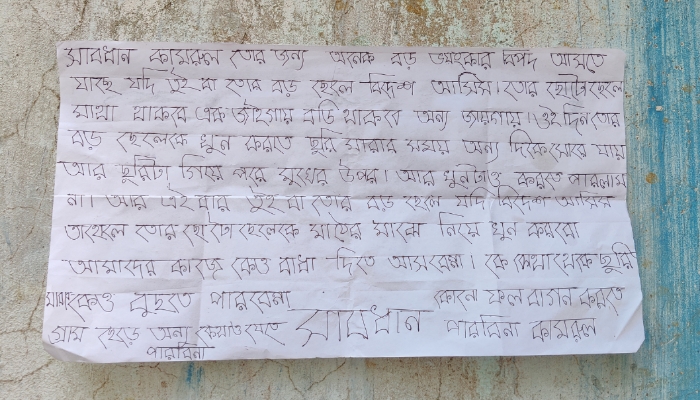 সাবধান কামরুল তোর জন্য অনেক বড় ভয়ংকার বিপদ আসতে
যাছে যদি তুই বা তোর বড় ছেলে বিদেশ আসিস। তোর ছোটোছেলে
মাথা থাকবে এক জাইগায় বডি থাকবে অন্য জায়গায়। ওই দিন তোর
বড় ছেলেকে খুন করতে ছুরি মারার সময় অন্য দিকে সরে যায়
আর ছুরিটা গিয়ে পরে মুখের উপর। আর খুনটাও করতে পারলাম
না। আর এই বার তুই বা তোর বড় ছেলে যদি বিদেশ আসিস
তাহলে তোর ছোটো ছেলেকে মাঠের মাঝে নিয়ে খুন করবো
আমাদের কাজে কেও বাধা দিতে আসবেনা। কে কোথা থেকে ছুরি
কেও বুছতে পারবেনা কোনো ফল বাগান করতে
গ্রাম ছেড়ে অন্য যেতে সাবধান পারবিনা কামরুল
পারবিনা